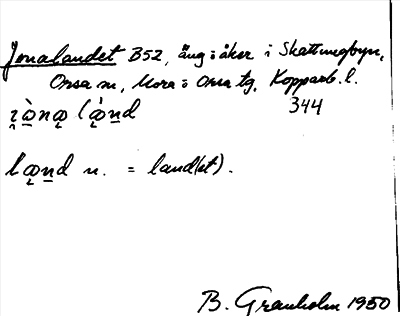 Jonalandet B52, äng o åker i Skattungbyn,
Orsa sn, Mora o Orsa tg, Kopparb. l.
344
land n. = land(et).
B. Granholm 1950